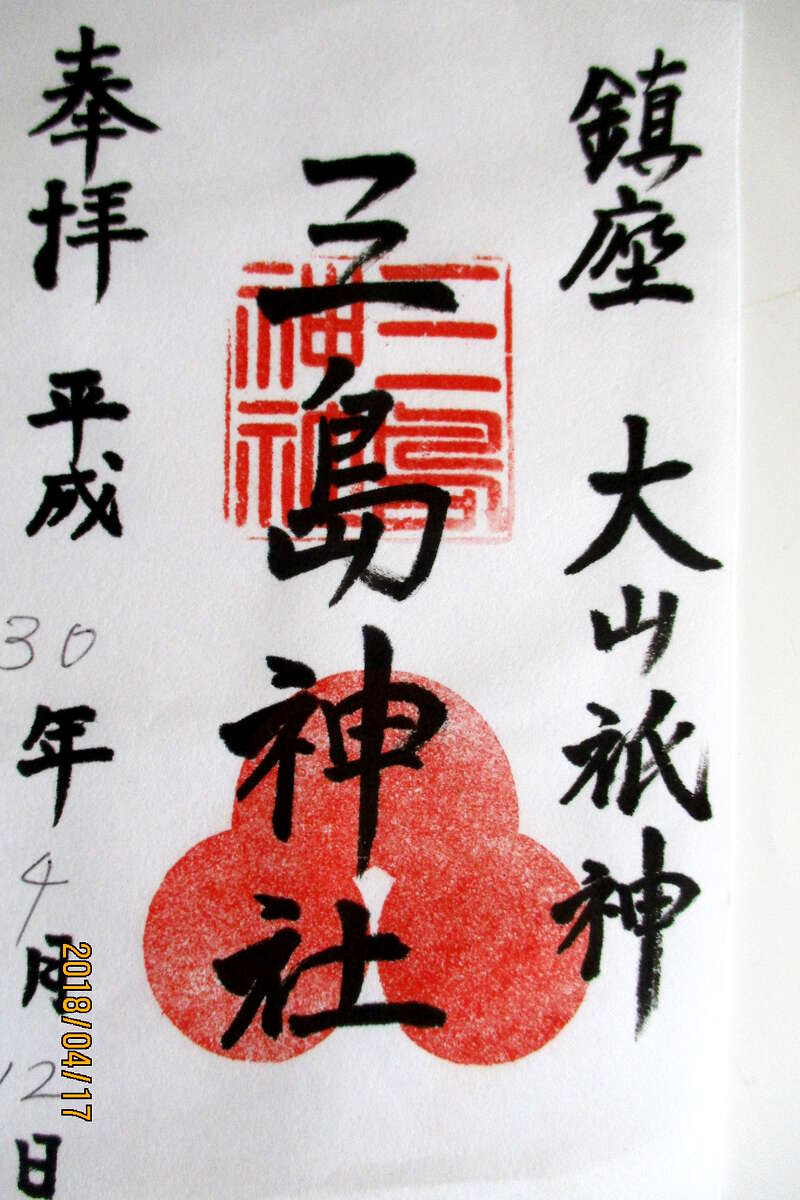 鎮座 大山祇神
三島神社
三島神社神
奉拝 平成30年4月12日
2018/04/17